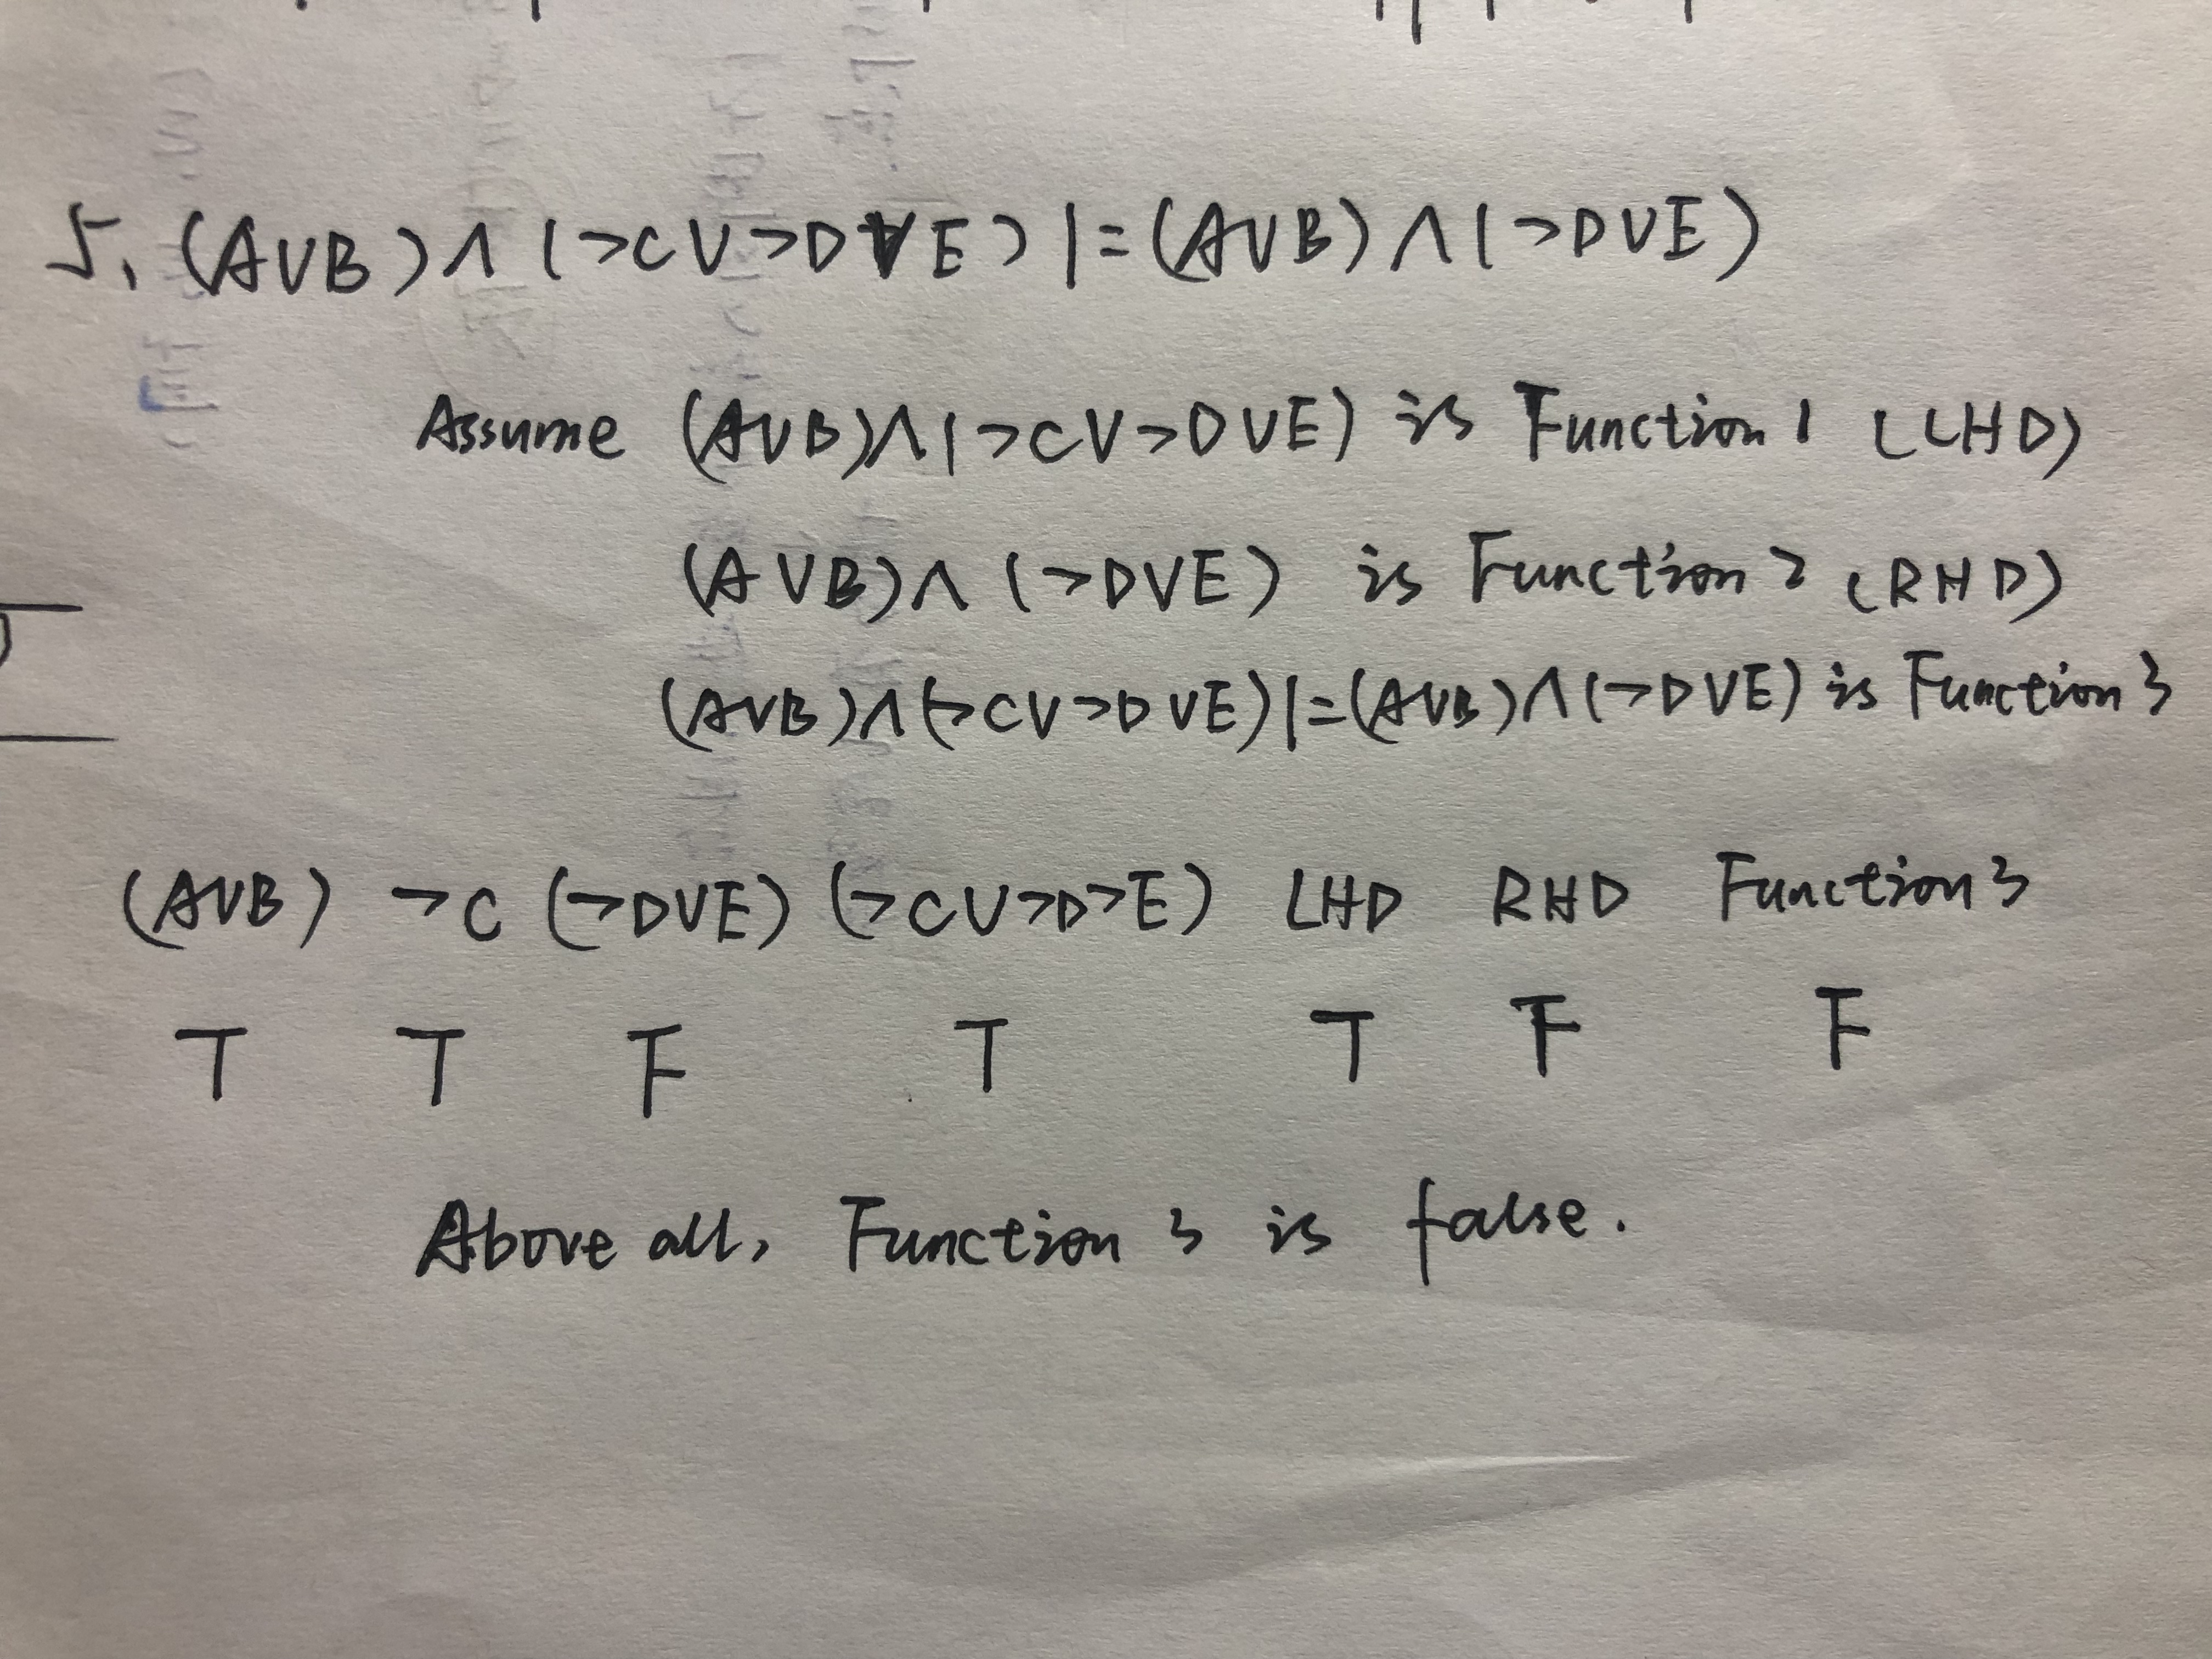 5. (A∨B)∧(¬C∨¬D∨E) |= (A∨B)∧(¬D∨E)
Assume (A∨B)∧(¬C∨¬D∨E) is Function 1 (LHD)
(A∨B)∧(¬D∨E) is Function 2 (RHD)
(A∨B)∧(¬C∨¬D∨E) |= (A∨B)∧(¬D∨E) is Function 3
(A∨B) ¬C (¬D∨E) (¬C∨¬D¬E) LHD RHD Function 3
T T F T T F F
Above all, Function 3 is false.